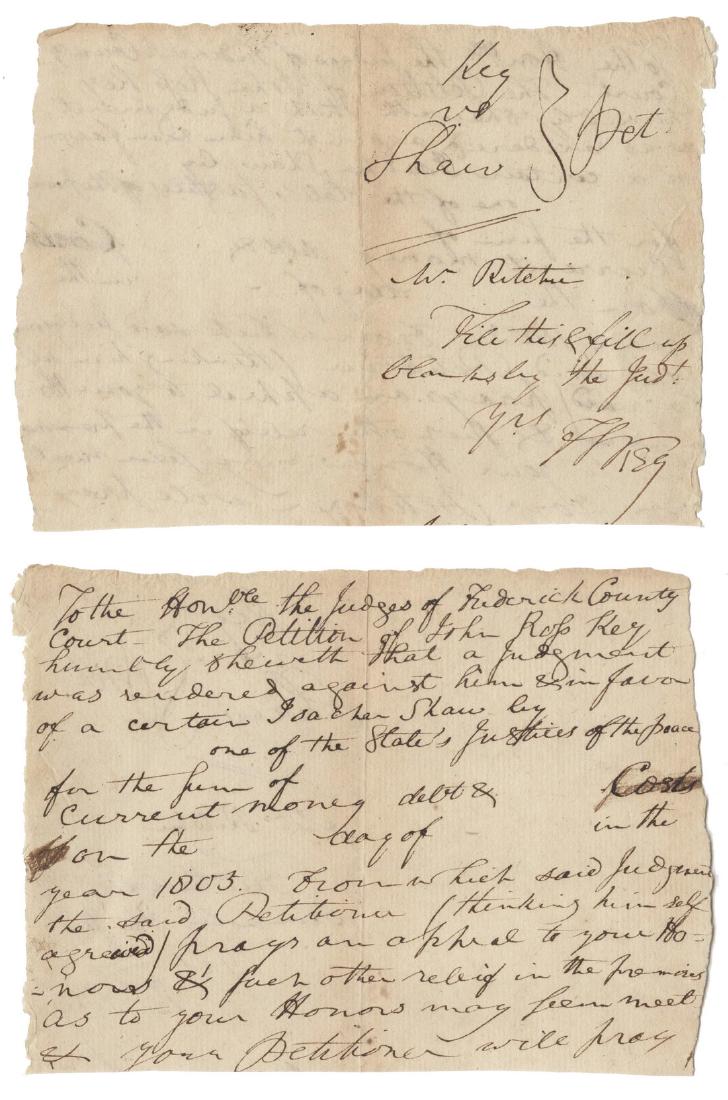 Key
vs
Shaw
Pet.
Mr. Ritchie
File this & fill up
blanks by the Judt.
Yrs FSKey
To the Honble the Judges of Frederick County
Court - The Petition of John Ross Key
humbly sheweth that a judgment
was rendered against him & in favor
of a certain Joachen Shaw by
one of the State's Justices of the peace
for the sum of
current money debt & Costs
on the day of in the
year 1803. From which said Judgment
the said Petitioner (thinking himself
agreivd) prays an appeal to your Ho=
=nors & such other releif in the premises
as to your Honors may seem meet
& your Petitioner will pray